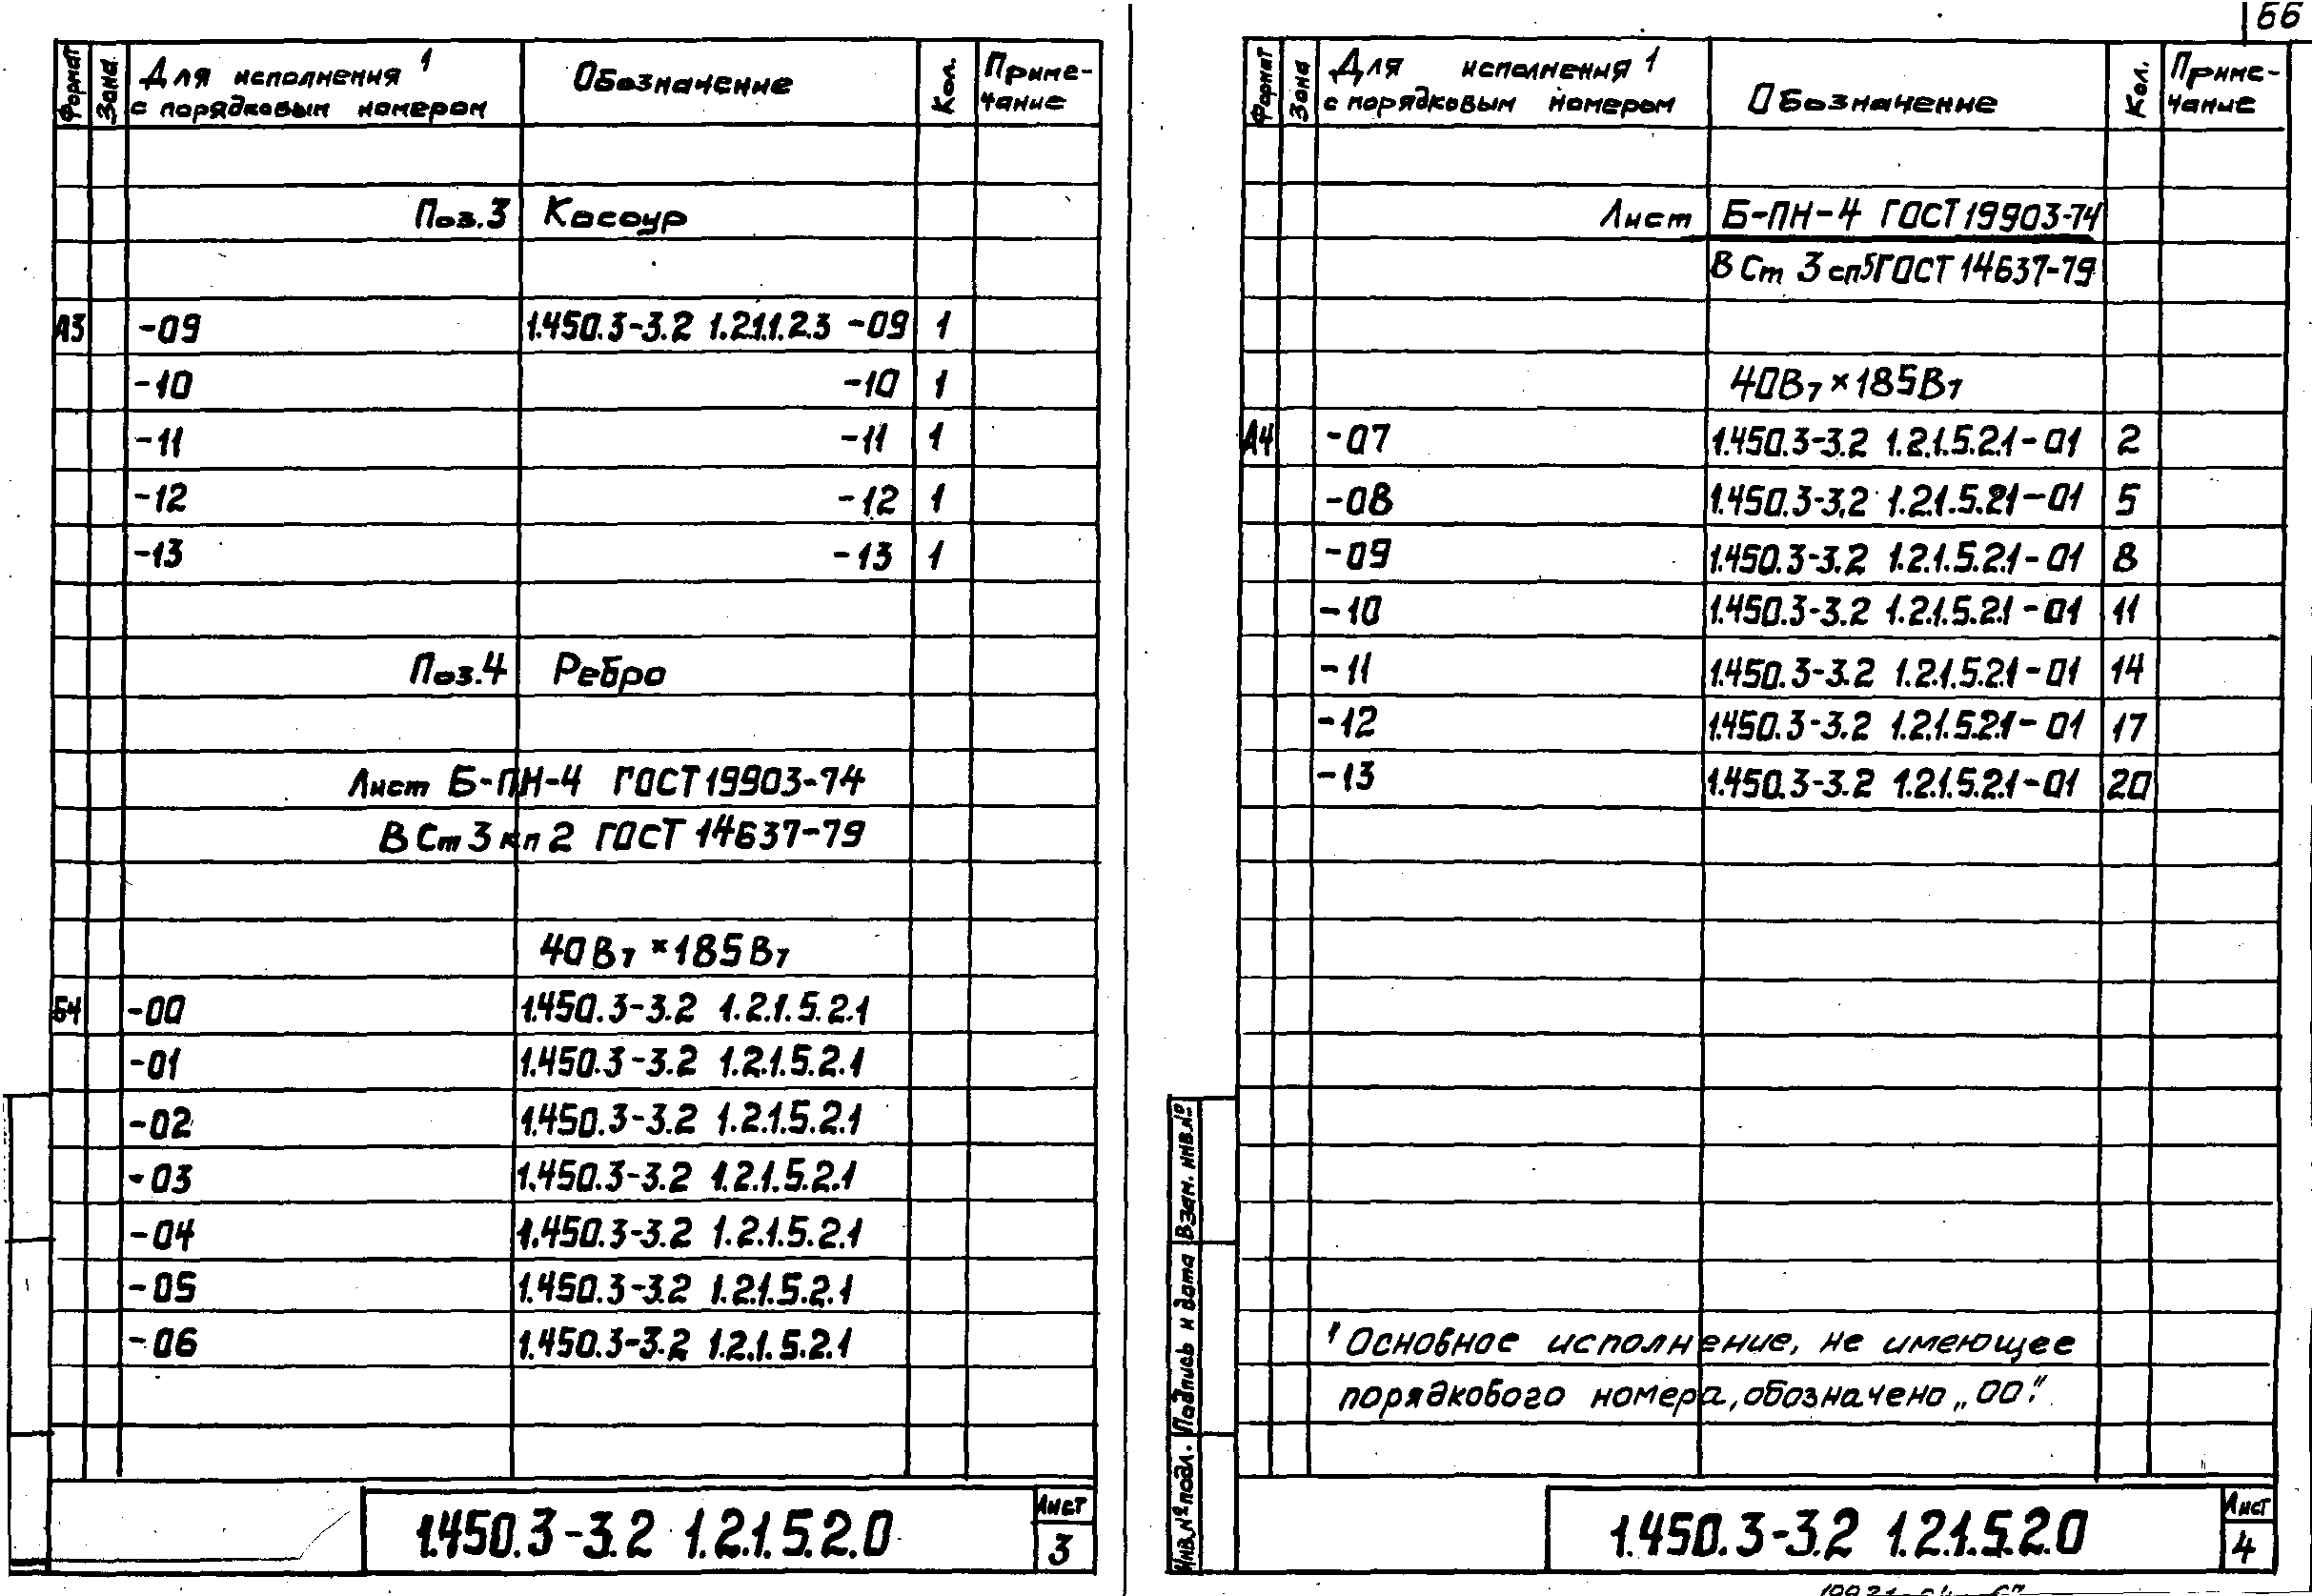 66
Формат
Зона
Для исполнения 1
с порядковым номером
Обозначение
Кол.
Приме-
чание
Поз.3 Косоур
А3 -09 1.450.3-3.2 1.2.1.1.2.3 -09 1
-10 -10 1
-11 -11 1
-12 -12 1
-13 -13 1
Поз.4 Ребро
Лист Б-ПН-4 ГОСТ 19903-74
В Ст 3 кп 2 ГОСТ 14637-79
40Вт × 185Вт
Б4 -00 1.450.3-3.2 1.2.1.5.2.1
-01 1.450.3-3.2 1.2.1.5.2.1
-02 1.450.3-3.2 1.2.1.5.2.1
-03 1.450.3-3.2 1.2.1.5.2.1
-04 1.450.3-3.2 1.2.1.5.2.1
-05 1.450.3-3.2 1.2.1.5.2.1
-06 1.450.3-3.2 1.2.1.5.2.1
1.450.3-3.2 1.2.1.5.2.0
Лист
3
Формат
Зона
Для исполнения 1
с порядковым номером
Обозначение
Кол.
Приме-
чание
Лист Б-ПН-4 ГОСТ 19903-74
В Ст 3 сп5 ГОСТ 14637-79
40Вт × 185Вт
А4 -07 1.450.3-3.2 1.2.1.5.2.1-01 2
-08 1.450.3-3.2 1.2.1.5.2.1-01 5
-09 1.450.3-3.2 1.2.1.5.2.1-01 8
-10 1.450.3-3.2 1.2.1.5.2.1-01 11
-11 1.450.3-3.2 1.2.1.5.2.1-01 14
-12 1.450.3-3.2 1.2.1.5.2.1-01 17
-13 1.450.3-3.2 1.2.1.5.2.1-01 20
1 Основное исполнение, не имеющее
порядкового номера, обозначено „00."
Инв.№ подл. Подпись и дата Взам. инв.№
1.450.3-3.2 1.2.1.5.2.0
Лист
4